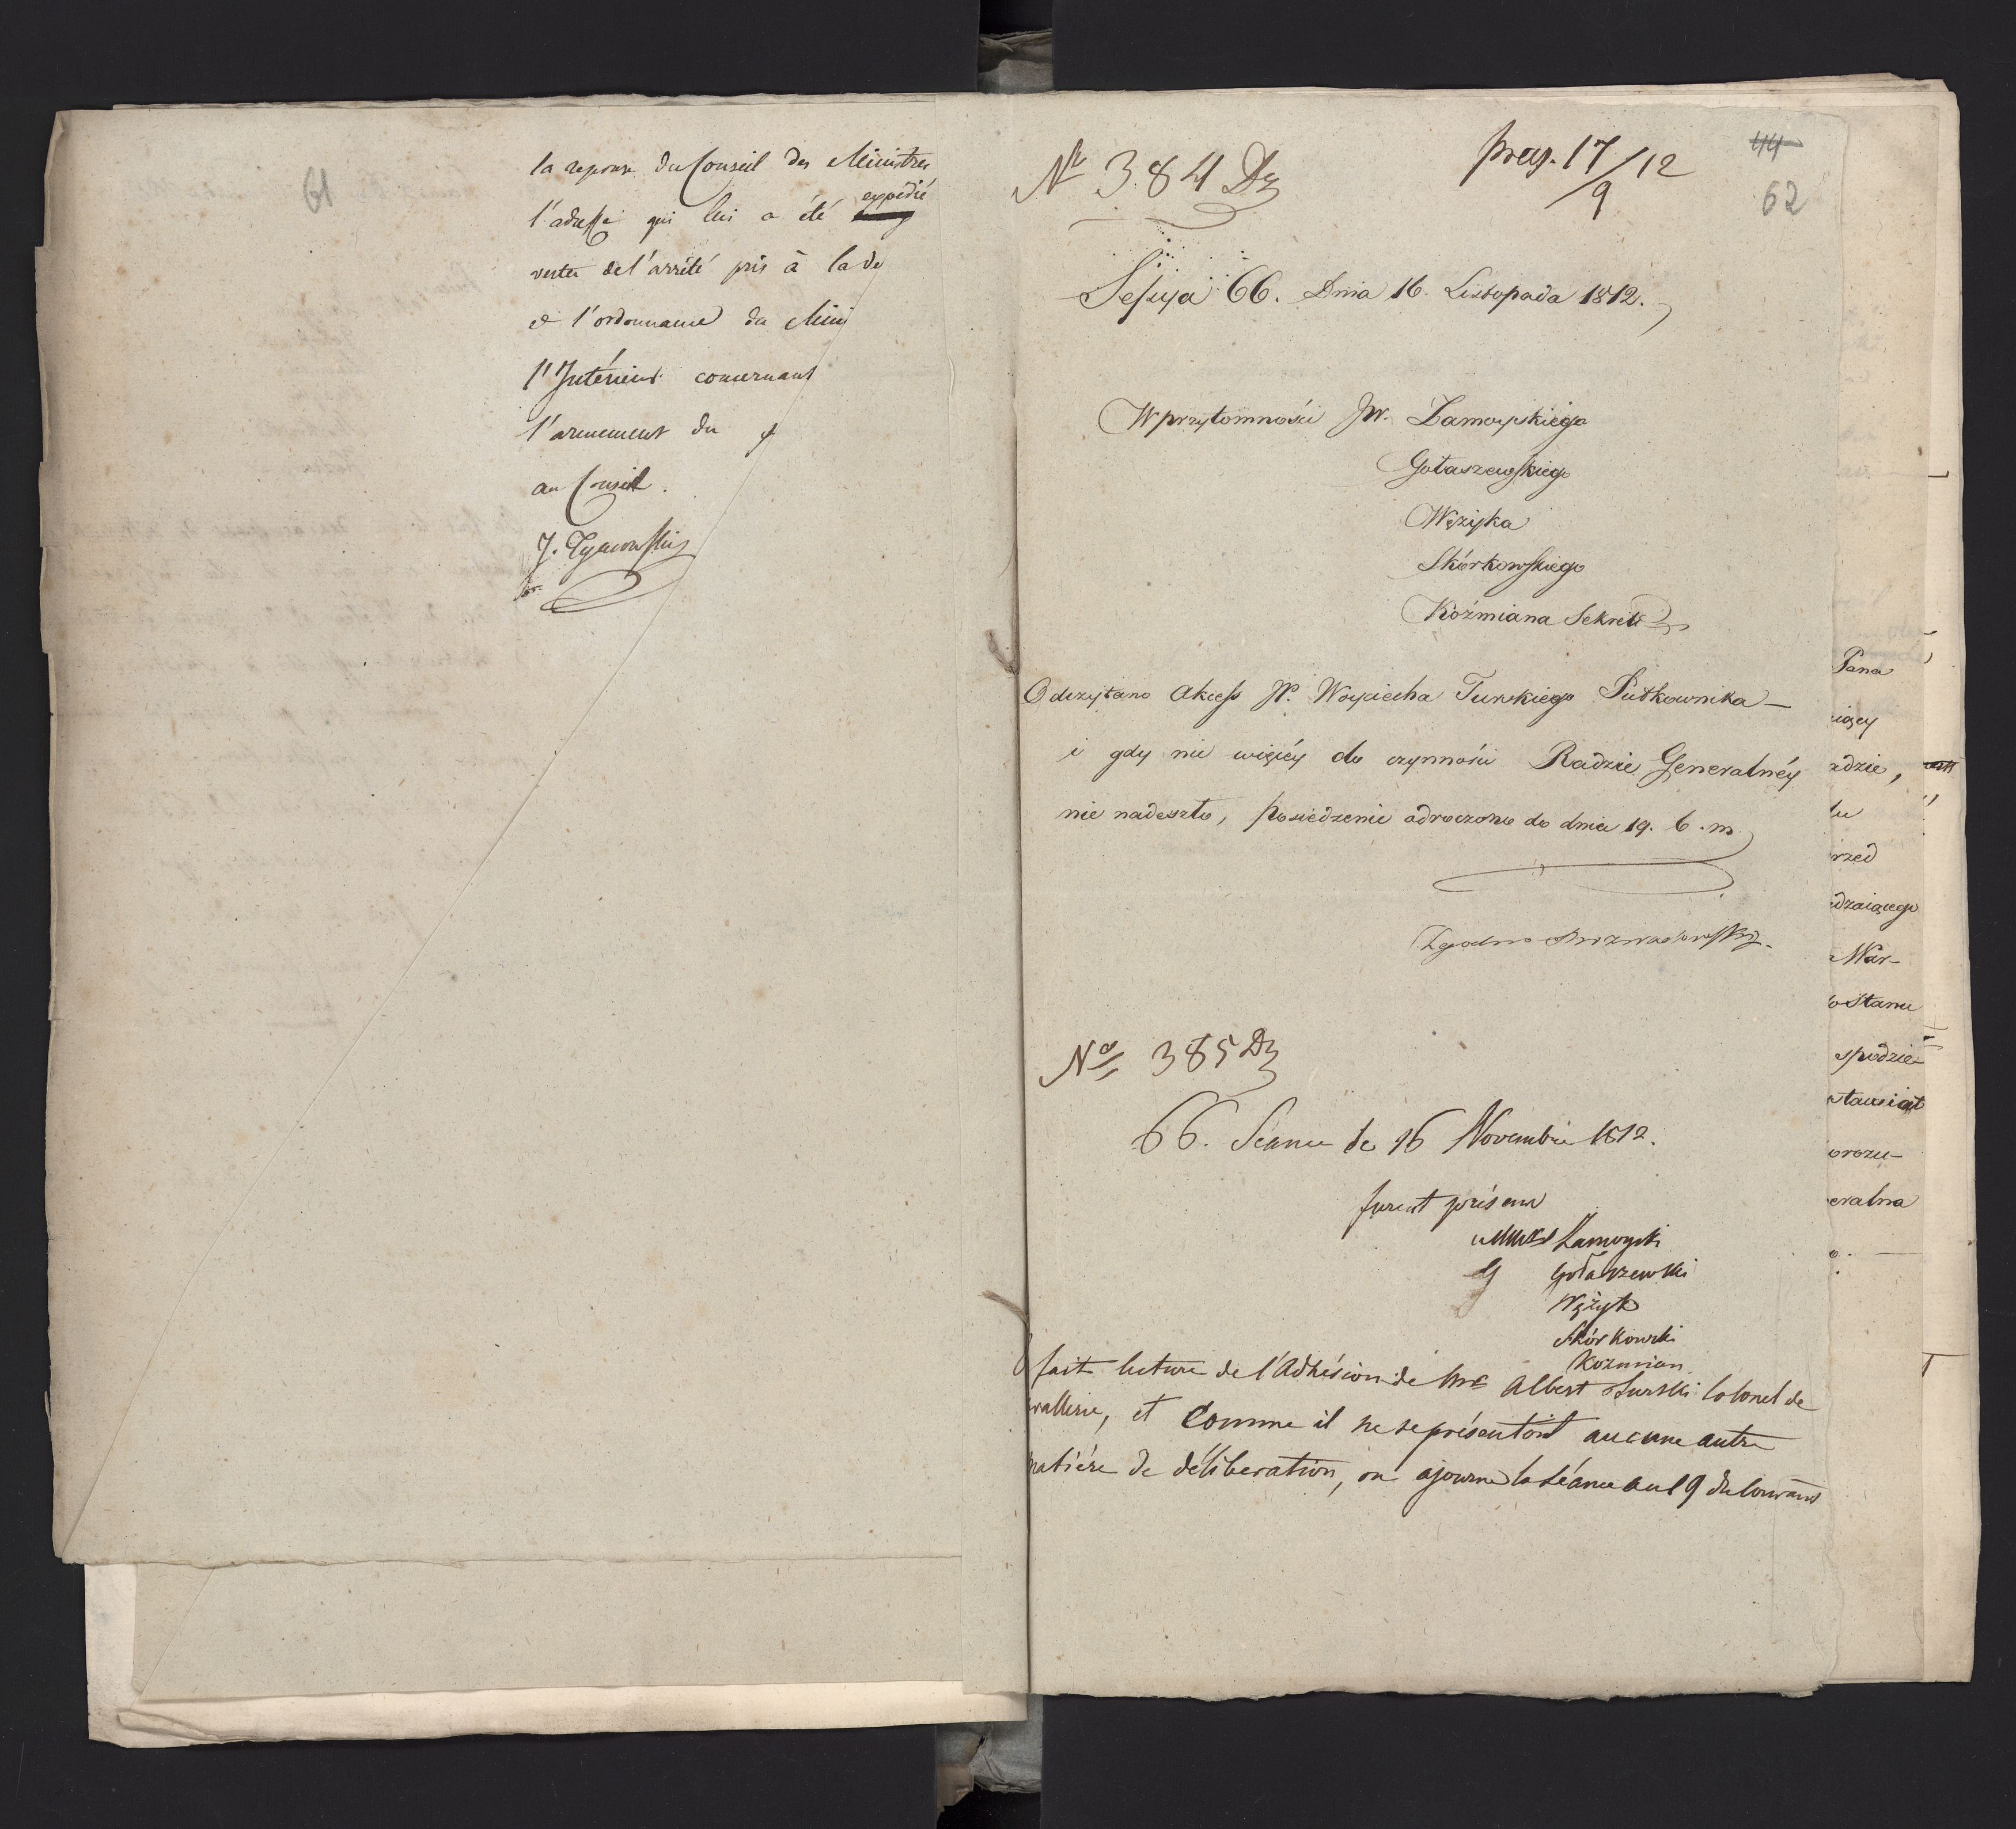 61
la reponse du Conseil des Ministres
l'adresse qui lui a été expedié
vertu de l'arrêté pris à la de
et l'ordonnance du Mini
l'Intérieur concernant
l'armement du
au Conseil.
44
62
N 384 Dz
17/9 12
Sessya 66. Dnia 16. Listopada 1812.
W przytomności JW. Zamoyskiego
Gołaszewskiego
Wężyka
Skórkowskiego
Koźmiana Sekret
Odczytano Akcess JP. Woyciecha Turskiego Pułkownika —
i gdy nic więcéy do czynności Radzie Generalnéy
nie nadeszło, posiedzenie odroczono do dnia 19. b. m
Zgodno
No 385 Dz
66. Séance de 16 Novembre 1812.
furent présens
Zamoyski
Gołaszewski
Wężyk
Skórkowski
Kozmian
fait lecture de l'Adhésion de Mr Albert Turski Colonel de
vallerie, et Comme il ne se présentoit aucune autre
matiére de déliberation, on ajourne la Séance au 19 du Courant
Pana
iący
adzie,
lu
rzed
dzaiącego
War-
o Stanu
spodzie-
orozu-
eralna
o. —